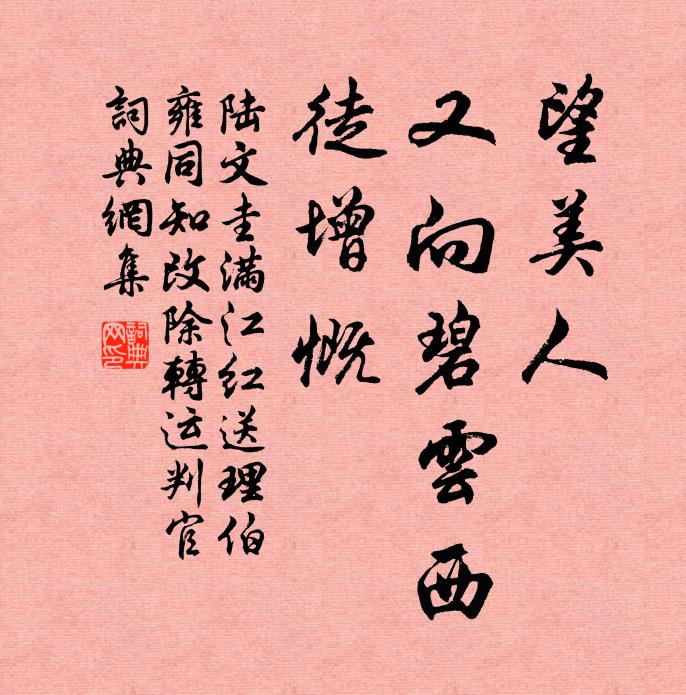 望美人
又向碧雲西
徒增慨
陆文圭满江红送理伯
雍同知改除轉运判官
詞典網集
詞典
网印